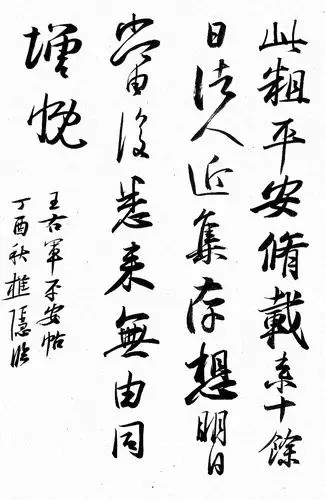 此粗平安脩載来十餘
日諸人近集存想明日
當復悉来無由同
增慨
王右軍平安帖
丁酉秋樵隱臨